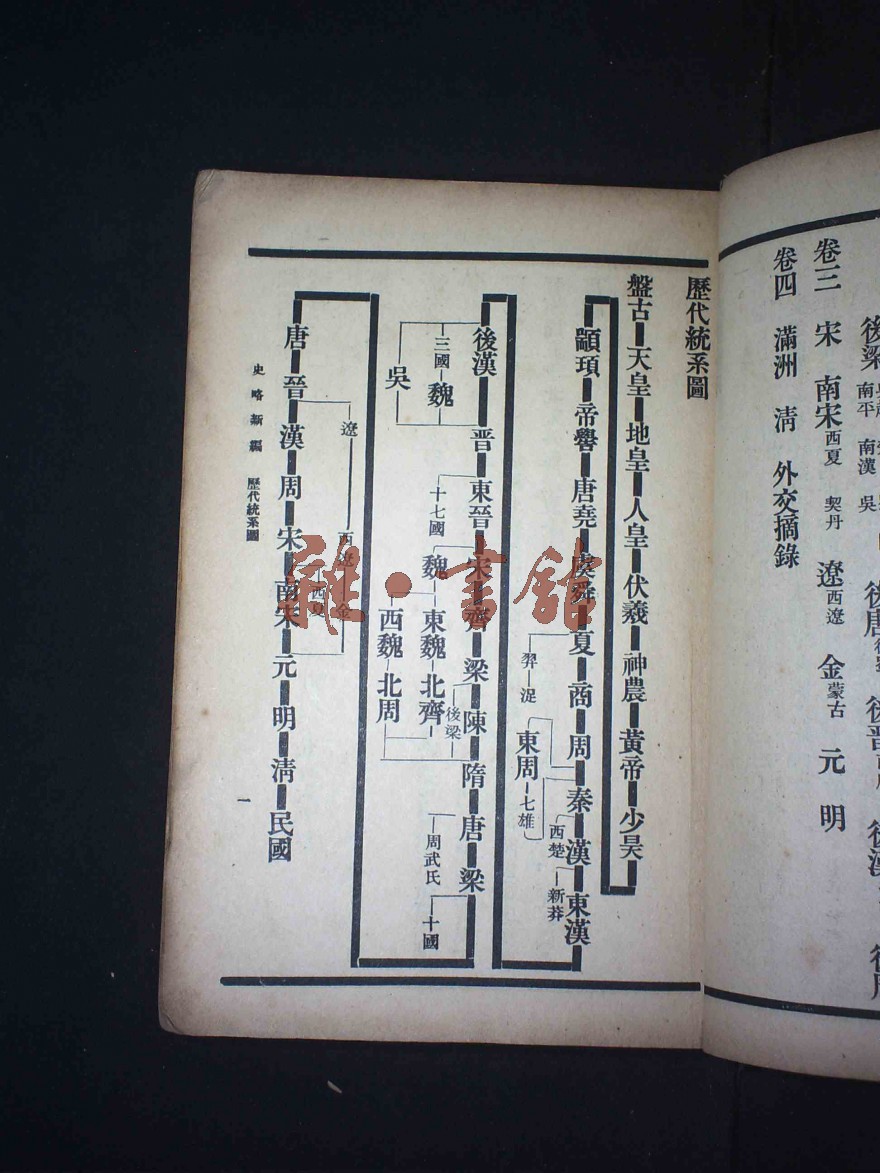 卷三　宋　南宋　西夏　契丹　遼　西遼　金　蒙古　元　明
卷四　滿洲　清　外交摘錄
歷代統系圖
盤古　天皇　地皇　人皇　伏羲　神農　黃帝　少昊
顓頊　帝嚳　唐堯　虞舜　夏　商　周　秦　漢　東漢
西楚　新莽
羿　浞　東周　七雄
後漢　晋　東晉　宋　齊　梁　陳　隋　唐　梁
後梁
三國　魏　十七國　魏　東魏　北齊　周武氏　十國
吳　西魏　北周
遼　西遼　金
西夏
唐　晉　漢　周　宋　南宋　元　明　清　民國
史略新編　歷代統系圖　一
雜·書館